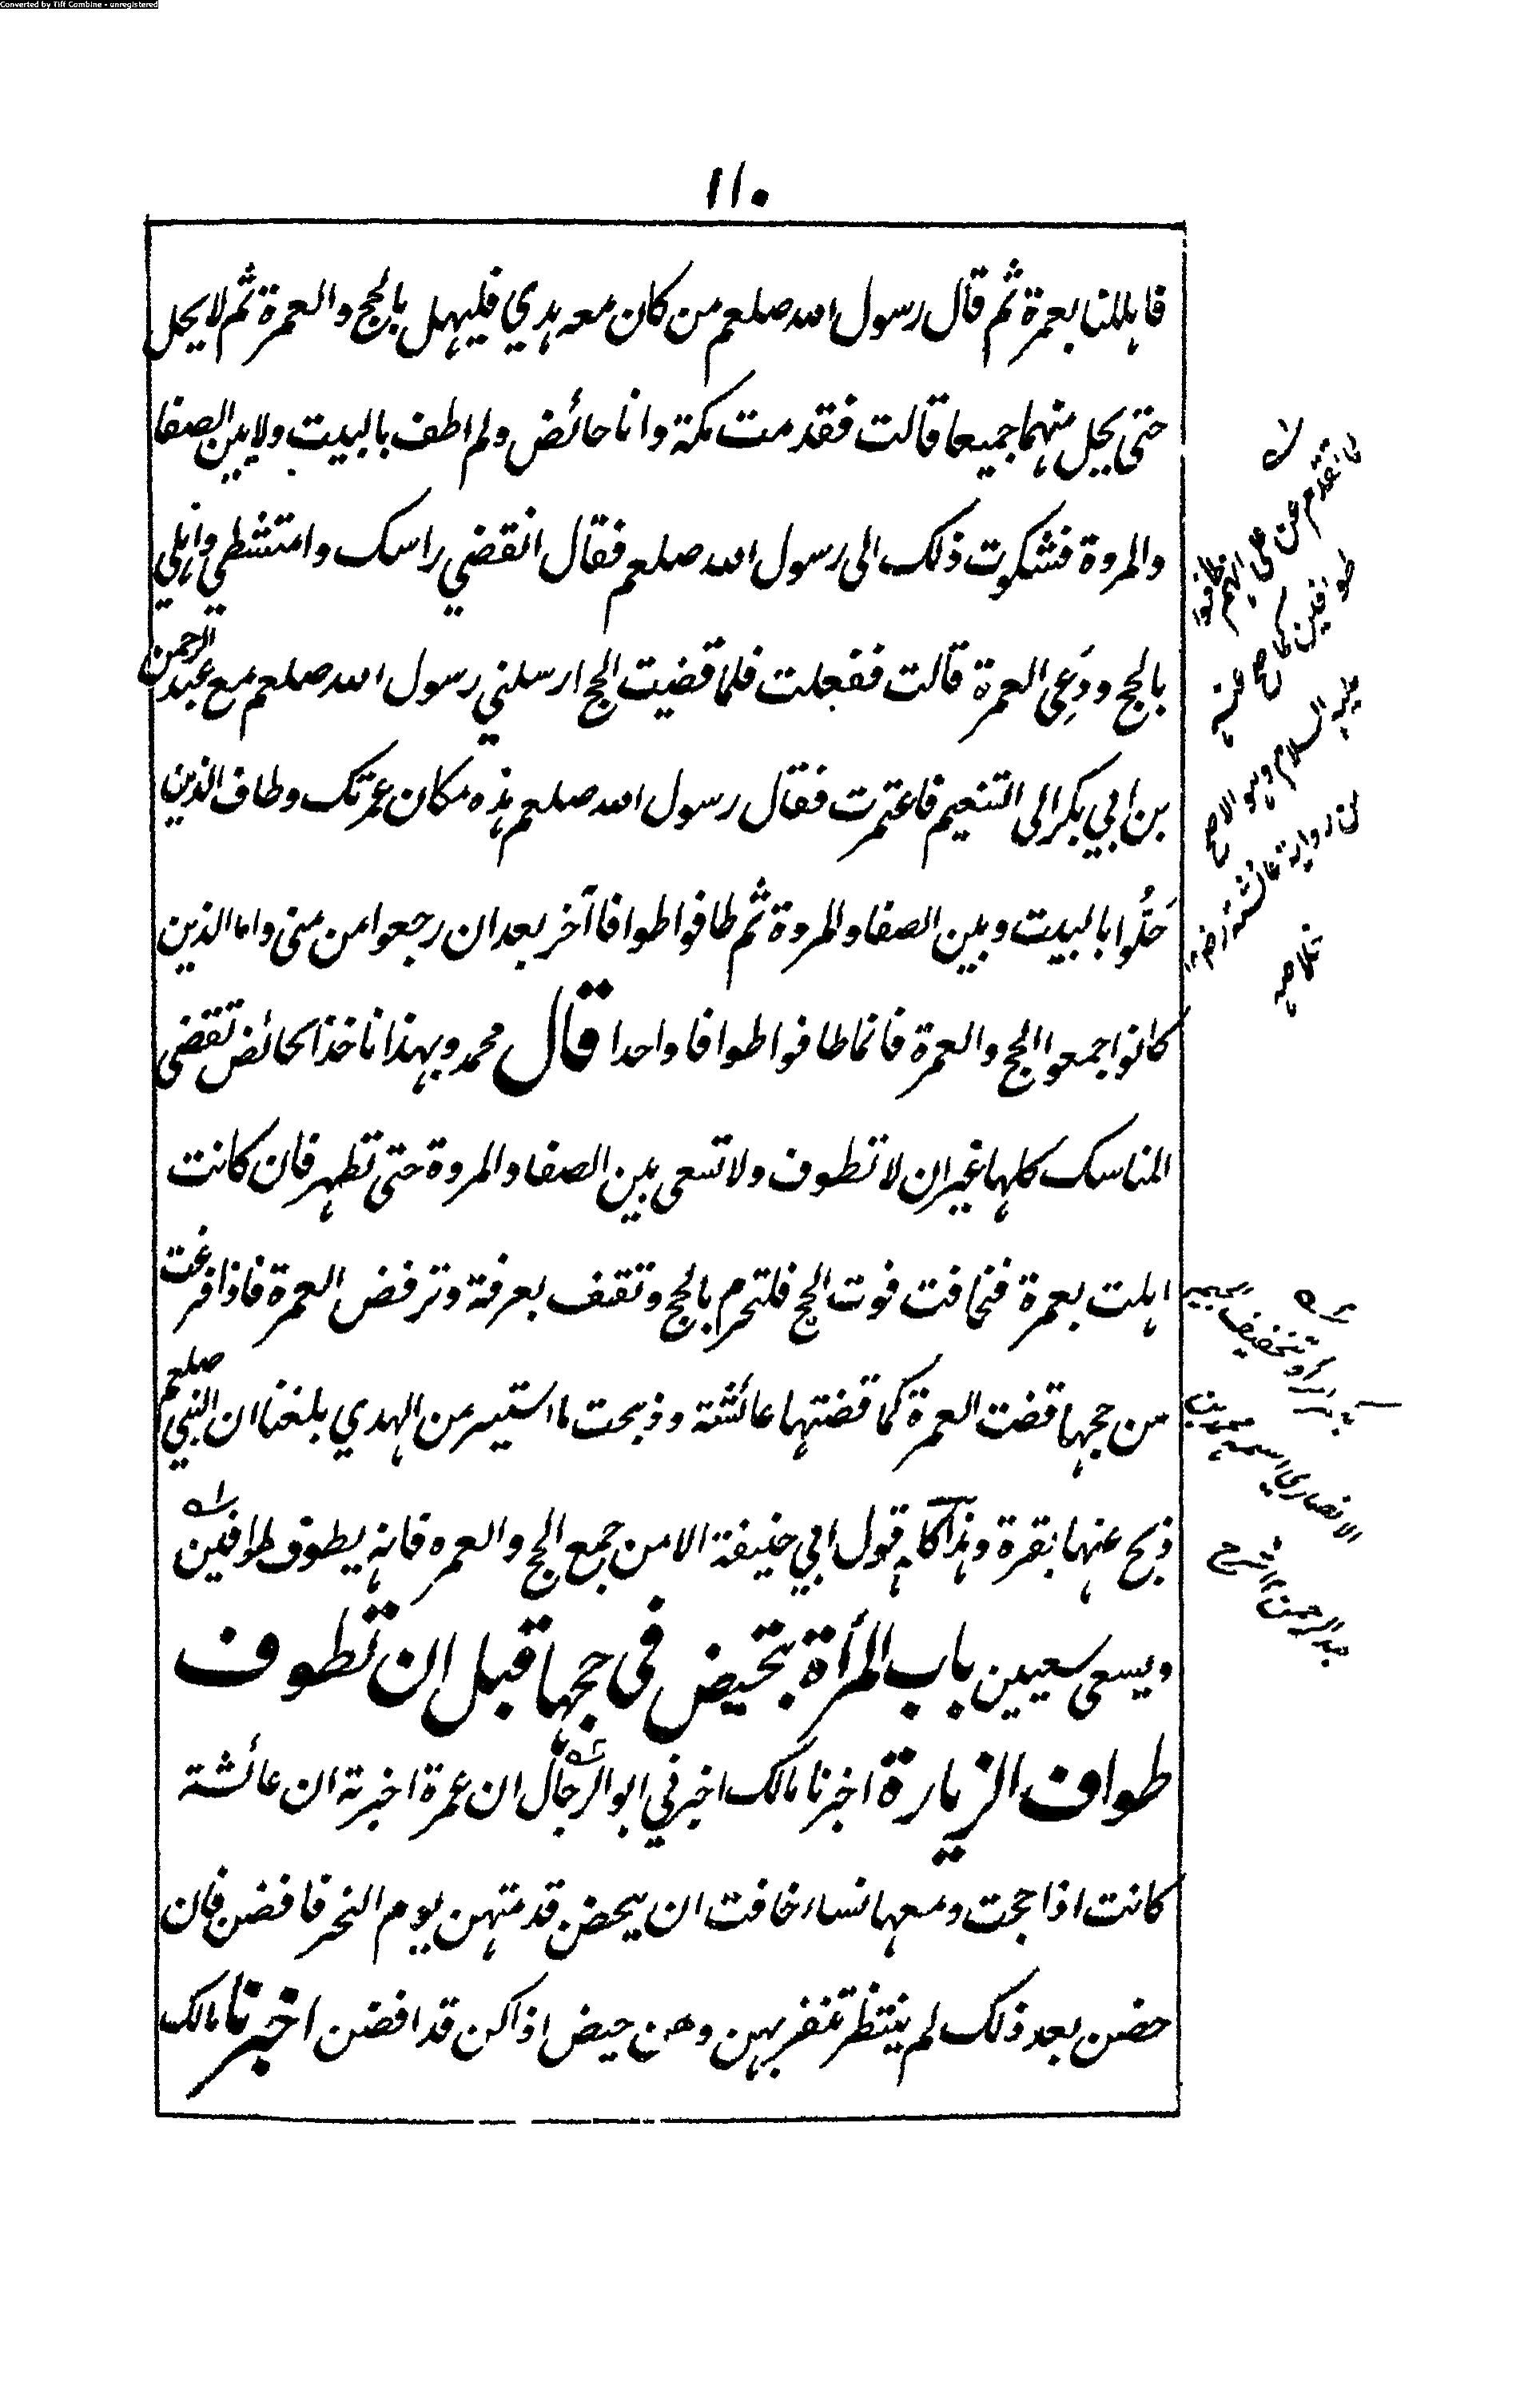 Converted by Tiff Combine - unregistered
١١٠
فاهللنا بعمرة ثم قال رسول الله صلعم من كان معه هدي فليهل بالحج والعمرة ثم لا يحل
حتى يحل منهما جميعا قالت فقدمت مكة وانا حائض ولم اطف بالبيت ولا بين الصفا
والمروة فشكوت ذلك الى رسول الله صلعم فقال انقضي راسك وامتشطي واهلي
بالحج ودَعِى العمرة قالت ففعلت فلما قضيت الحج ارسلني رسول الله صلعم مع عبد الرحمن
بن ابي بكر الى التنعيم فاعتمرت فقال رسول الله صلعم هذه مكان عمرتك وطاف الذين
حَلُّوا بالبيت وبين الصفا والمروة ثم طافوا طوافا آخر بعد ان رجعوا من منى واما الذين
كانوا جمعوا الحج والعمرة فانما طافوا طوافا واحدا قال محمد وبهذا ناخذ الحائض تقضى
المناسك كلها غير ان لا تطوف ولا تسعى بين الصفا والمروة حتى تطهر فان كانت
اهلت بعمرة فخافت فوت الحج فلتحرم بالحج وتقف بعرفة وترفض العمرة فاذا فرغت
من حجها قضت العمرة كما قضتها عائشة وذبحت ما استيسر من الهدي بلغنا ان النبي صلعم
ذبح عنها بقرة وهذا كله قول ابي حنيفة الا من جمع الحج والعمره فانه يطوف طوافين
ويسعى سعيين باب المرأة تحيض فى حجها قبل ان تطوف
طواف الزيارة اخبرنا مالك اخبرني ابو الرجال ان عمرة اخبرته ان عائشة
كانت اذا حجت ومعها نساء خافت ان يحضن قدمتهن يوم النحر فافضن فان
حضن بعد ذلك لم ينتظر تنفر بهن وهن حيض اذا كن قد افضن اخبرنا مالك
لما تقدم عن علي انهم طافوا
طوافين كما صح عنه
عليه السلام وهو الاصح
من رواية عائشة رضـ
الانصاري اسمه محمد بن
عبد الرحمن شرح